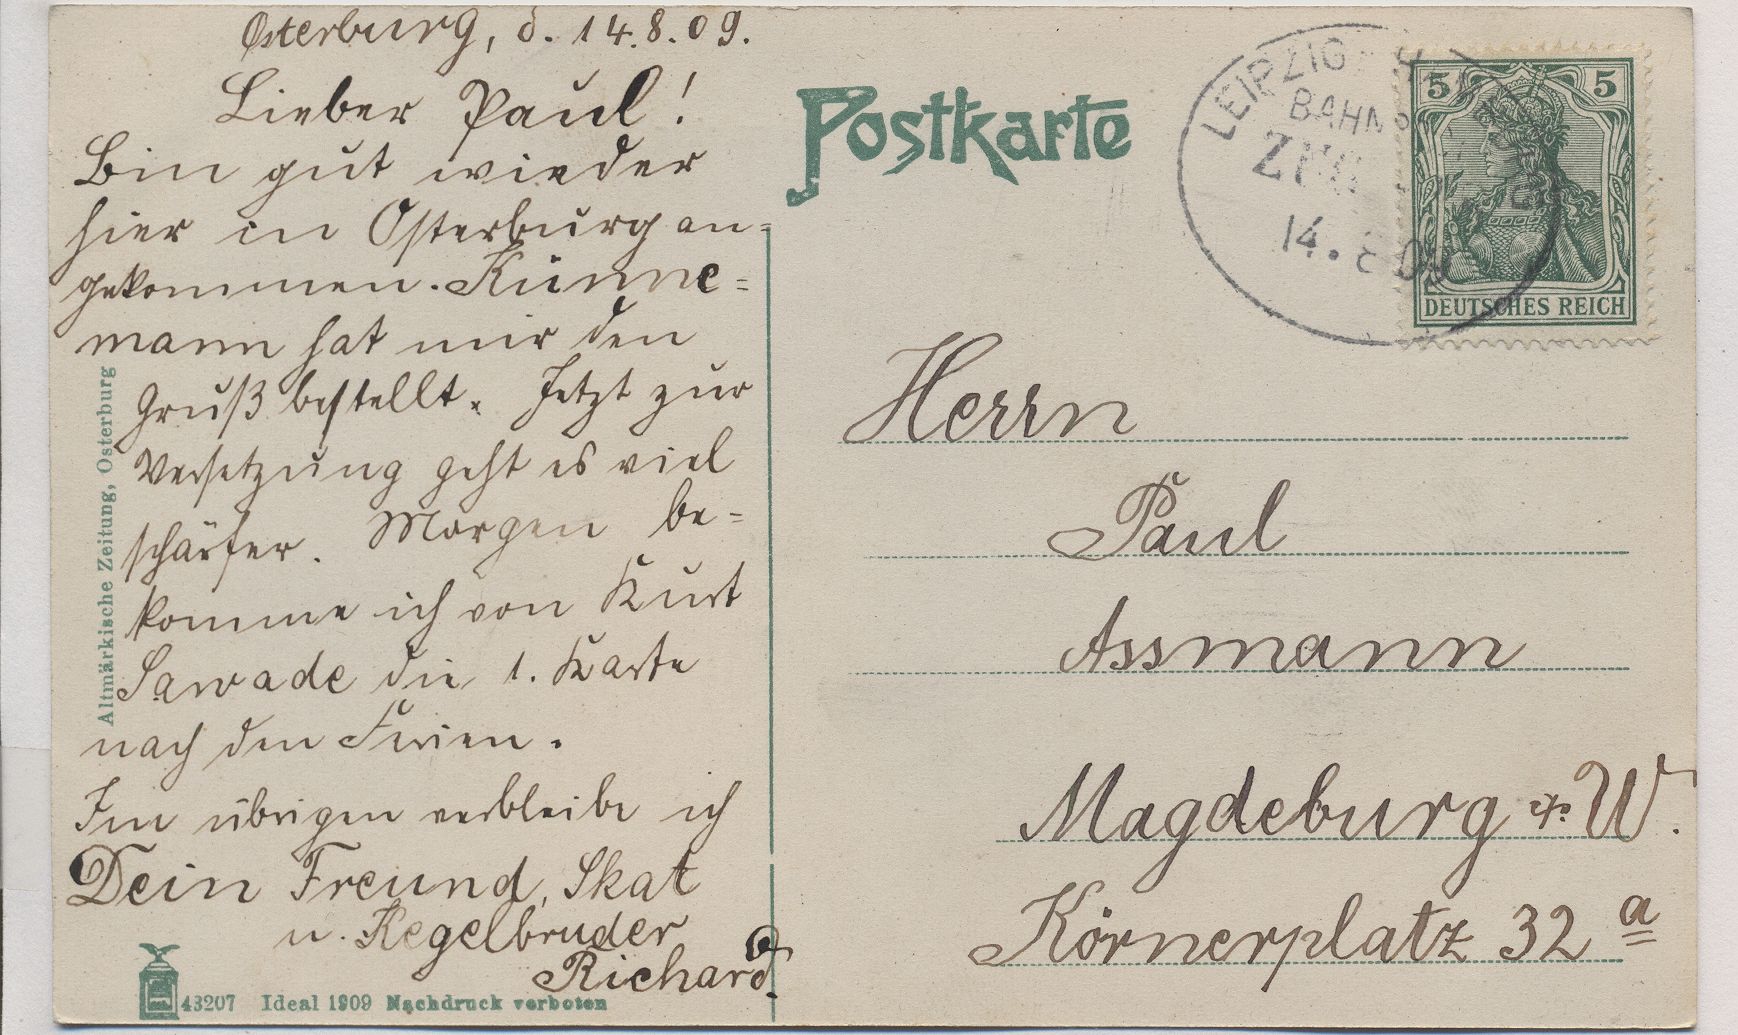 Osterburg, d. 14.8.09.
Lieber Paul!
Bin gut wieder
hier in Osterburg an=
gekommen. Künne=
mann hat mir den
Gruß bestellt. Jetzt zur
Versetzung geht es viel
schärfer. Morgen be=
komme ich von Kurt
Sawade die 1. Karte
nach den Ferien.
Im übrigen verbleibe ich
Dein Freund, Skat
u. Kegelbruder
Richard.
Altmärkische Zeitung, Osterburg
43207 Ideal 1909 Nachdruck verboten
Postkarte
LEIPZIG
BAHN
14. 8 09
5 5
DEUTSCHES REICH
Herrn
Paul
Assmann
Magdeburg W.
Körnerplatz 32 a